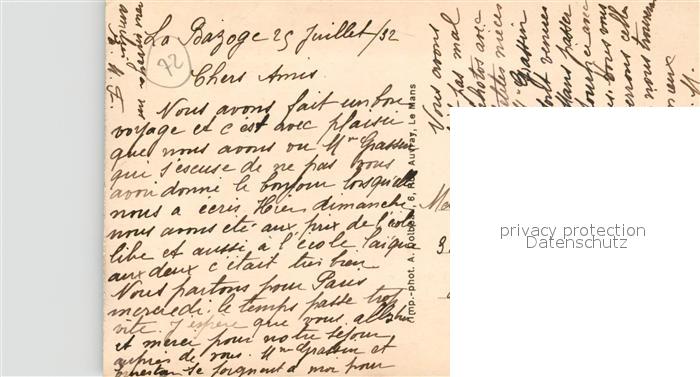 La Bazoge 25 Juillet/32
72
Chers Amis
Nous avons fait un bon
voyage et c'est avec plaisir
que nous avons vu Mme Grassin
qui s'escuse de ne pas vous
avoir donné le bonjour lorsqu'elle
nous a écris. Hier dimanche
nous avons été aux prix de l'école
libe et aussi à l'école laique
aux deux c'était très bien
Nous partons pour Paris
mercredi. le temps passe trop
vite. J'espère que vous allez bien
et merci pour notre séjour
auprès de vous. Mme Grassin et
se joignent à moi pour
Imp.-phot. A. Dolbeau, 6, Rue Auvray, Le Mans
Vous avons
pas mal
photos avec
petites nièces
Grassin
sont venues
Mans passer
vous
nous
privacy protection
Datenschutz